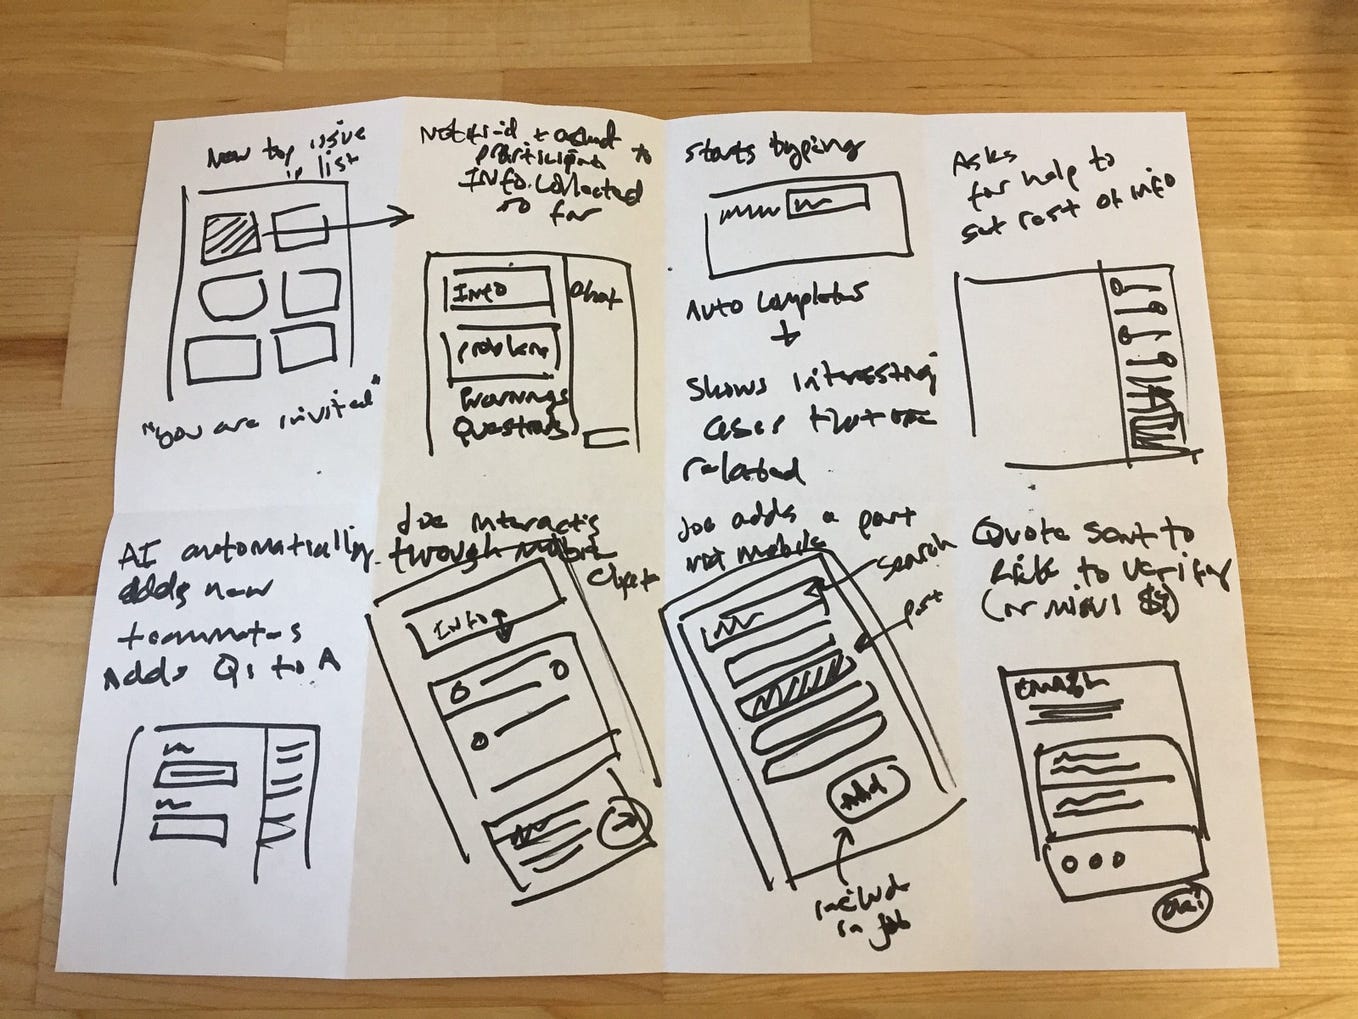 New top issue
in list
"you are invited"
Notified + asked
to
participate
Info collected
so far
Info
Chat
problem
Warnings
Questions
Starts typing
Auto completes
+
Shows interesting
cases that are
related
Asks
for help to
get rest of info
AI automatically
adds new
teammates
Adds Qs to A
Joe interacts
through mobile
Info
Joe adds a part
via mobile
search
part
Add
include
in job
Quote sent to
Rick to verify